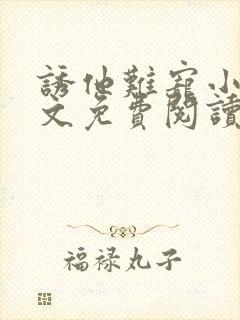 誘他難寵小
文免費閱讀
福禄丸子